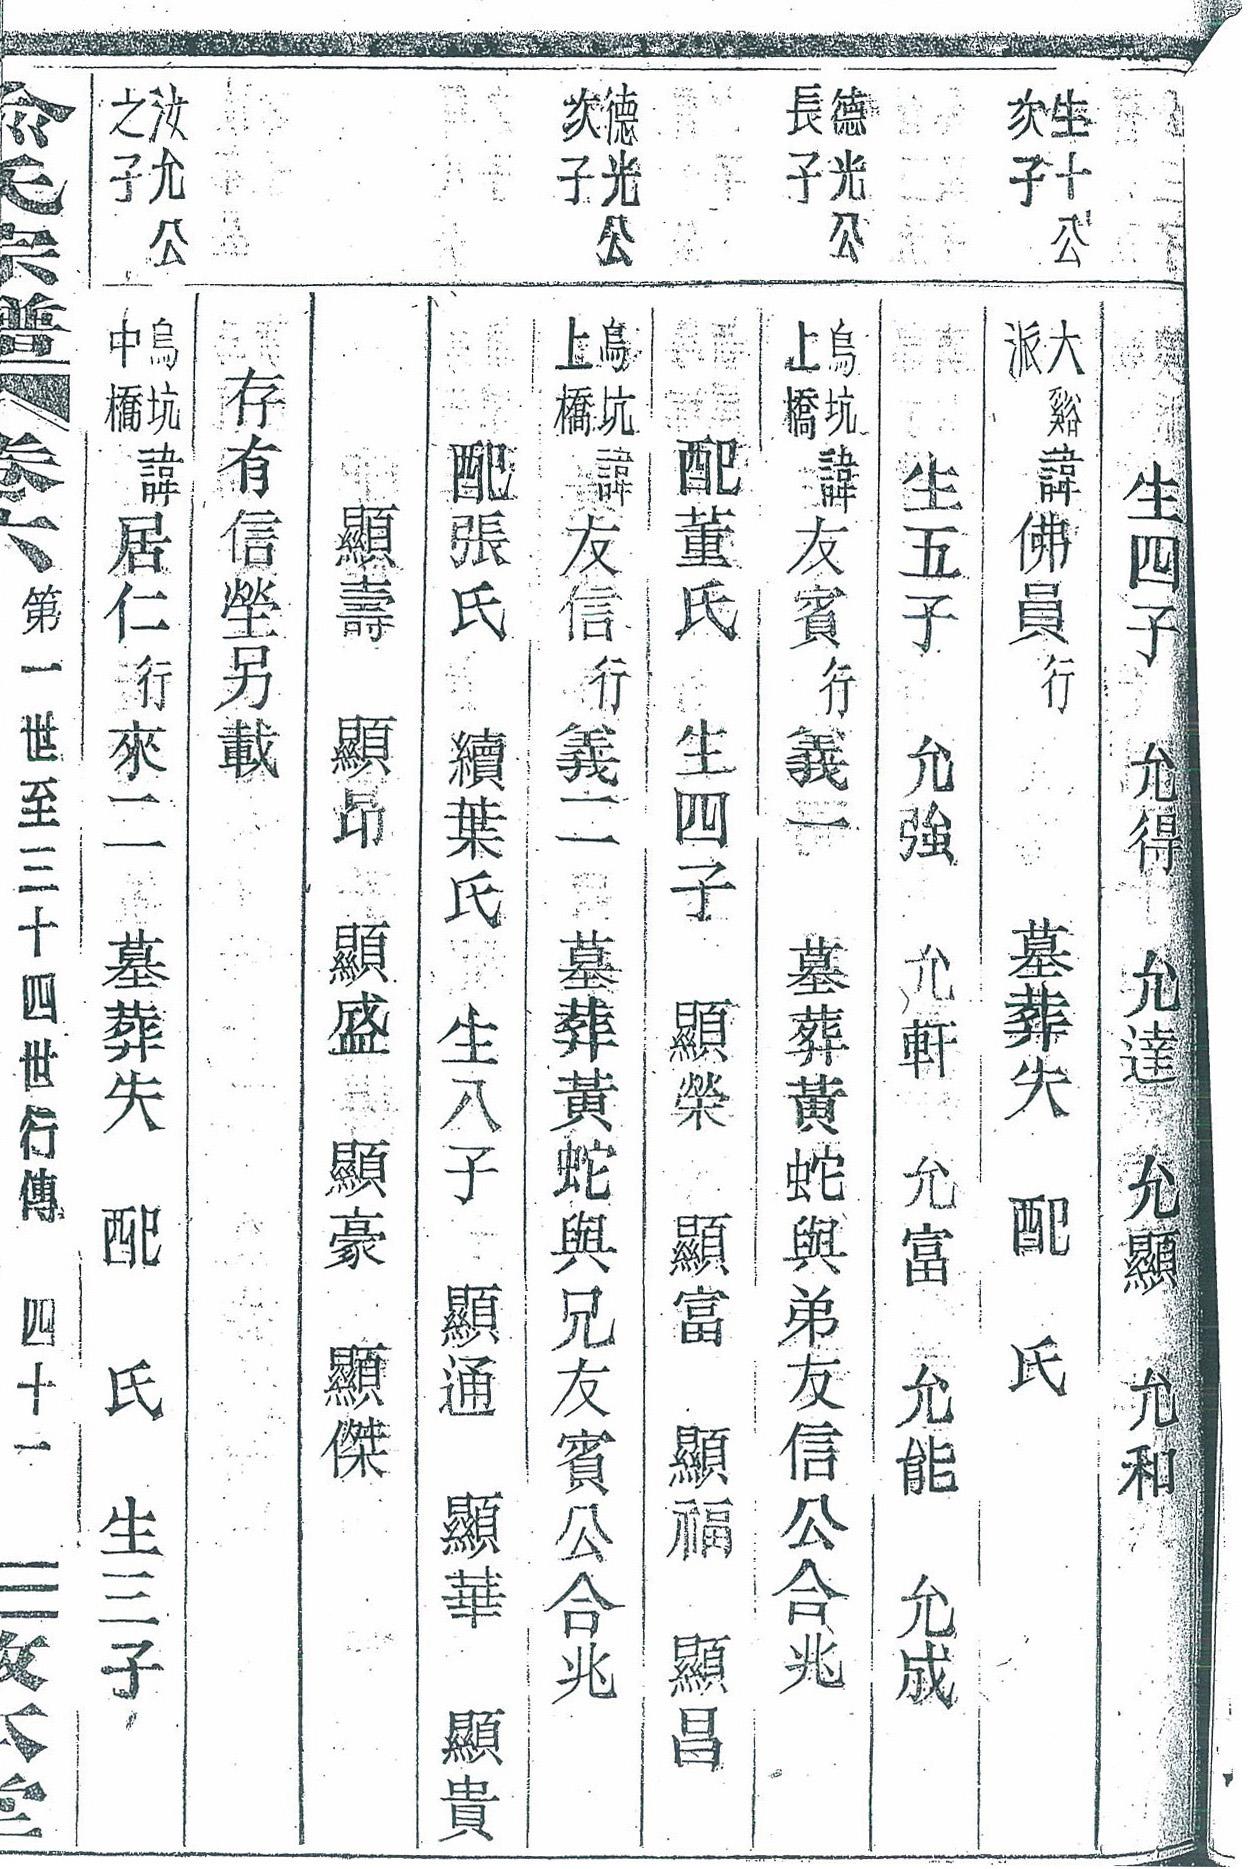 生四子 允得 允達 允顯 允和
生十公次子
大谿派 諱佛員行 墓葬失 配 氏
生五子 允強 允軒 允富 允能 允成
德光公長子
烏坑上橋 諱友賓行義一 墓葬黃蛇與弟友信公合兆
配董氏 生四子 顯榮 顯富 顯福 顯昌
德光公次子
烏坑上橋 諱友信行義二 墓葬黃蛇與兄友賓公合兆
配張氏 續葉氏 生八子 顯通 顯華 顯貴
顯壽 顯昂 顯盛 顯豪 顯傑
存有信塋另載
汝允公之子
烏坑中橋 諱居仁行來二 墓葬失 配 氏 生三子
俞氏宗譜 卷六 第一世至三十四世行傳 四十一